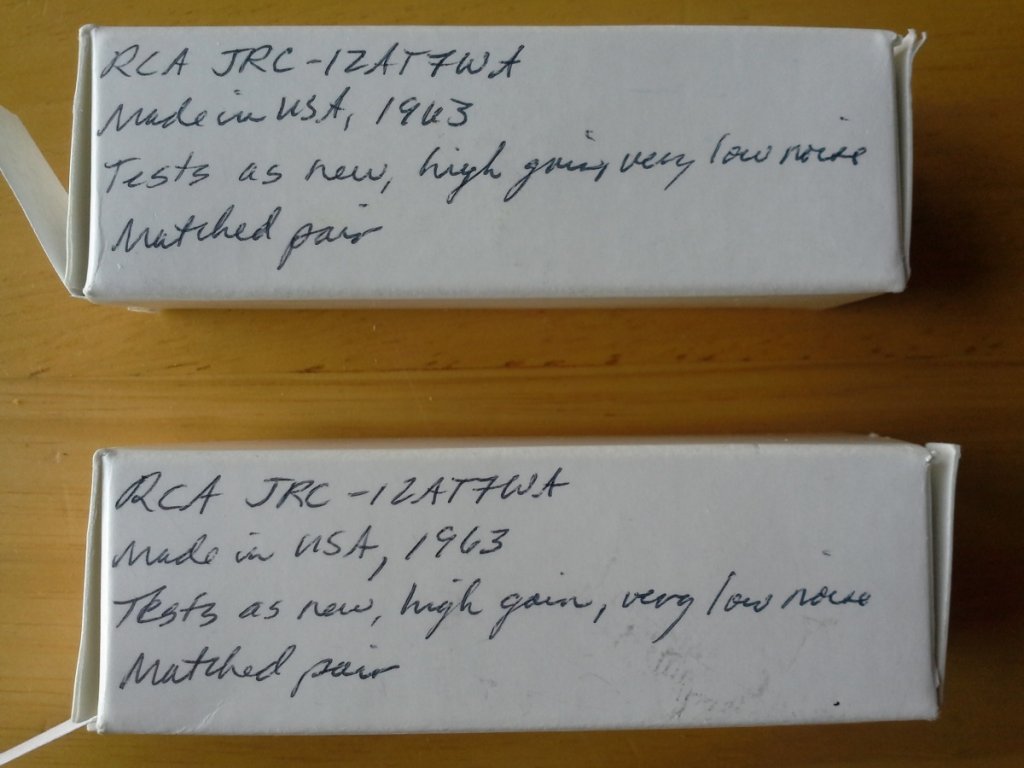 RCA JRC-12AT7WA
Made in USA, 1963
Tests as new, high gain, very low noise
Matched pair
RCA JRC-12AT7WA
Made in USA, 1963
Tests as new, high gain, very low noise
Matched pair